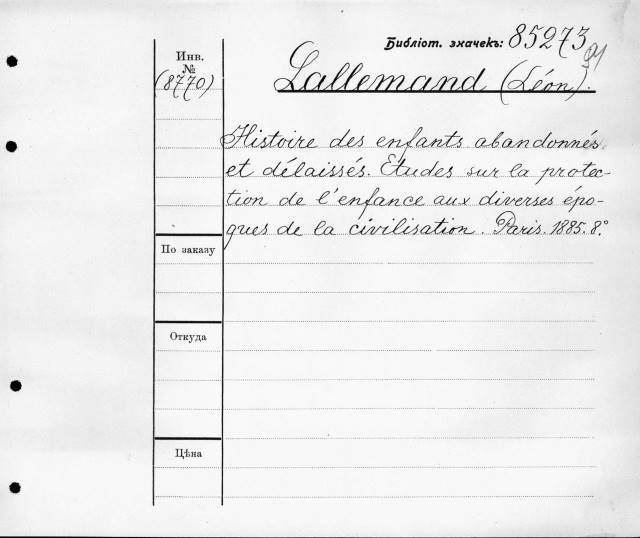 Библіот. значекъ: 85273
Инв.
№
(8770)
Lallemand (Léon).
Histoire des enfants abandonnés
et délaissés. Etudes sur la protec-
tion de l'enfance aux diverses épo-
ques de la civilisation. Paris. 1885. 8°.
По заказу
Откуда
Цѣна